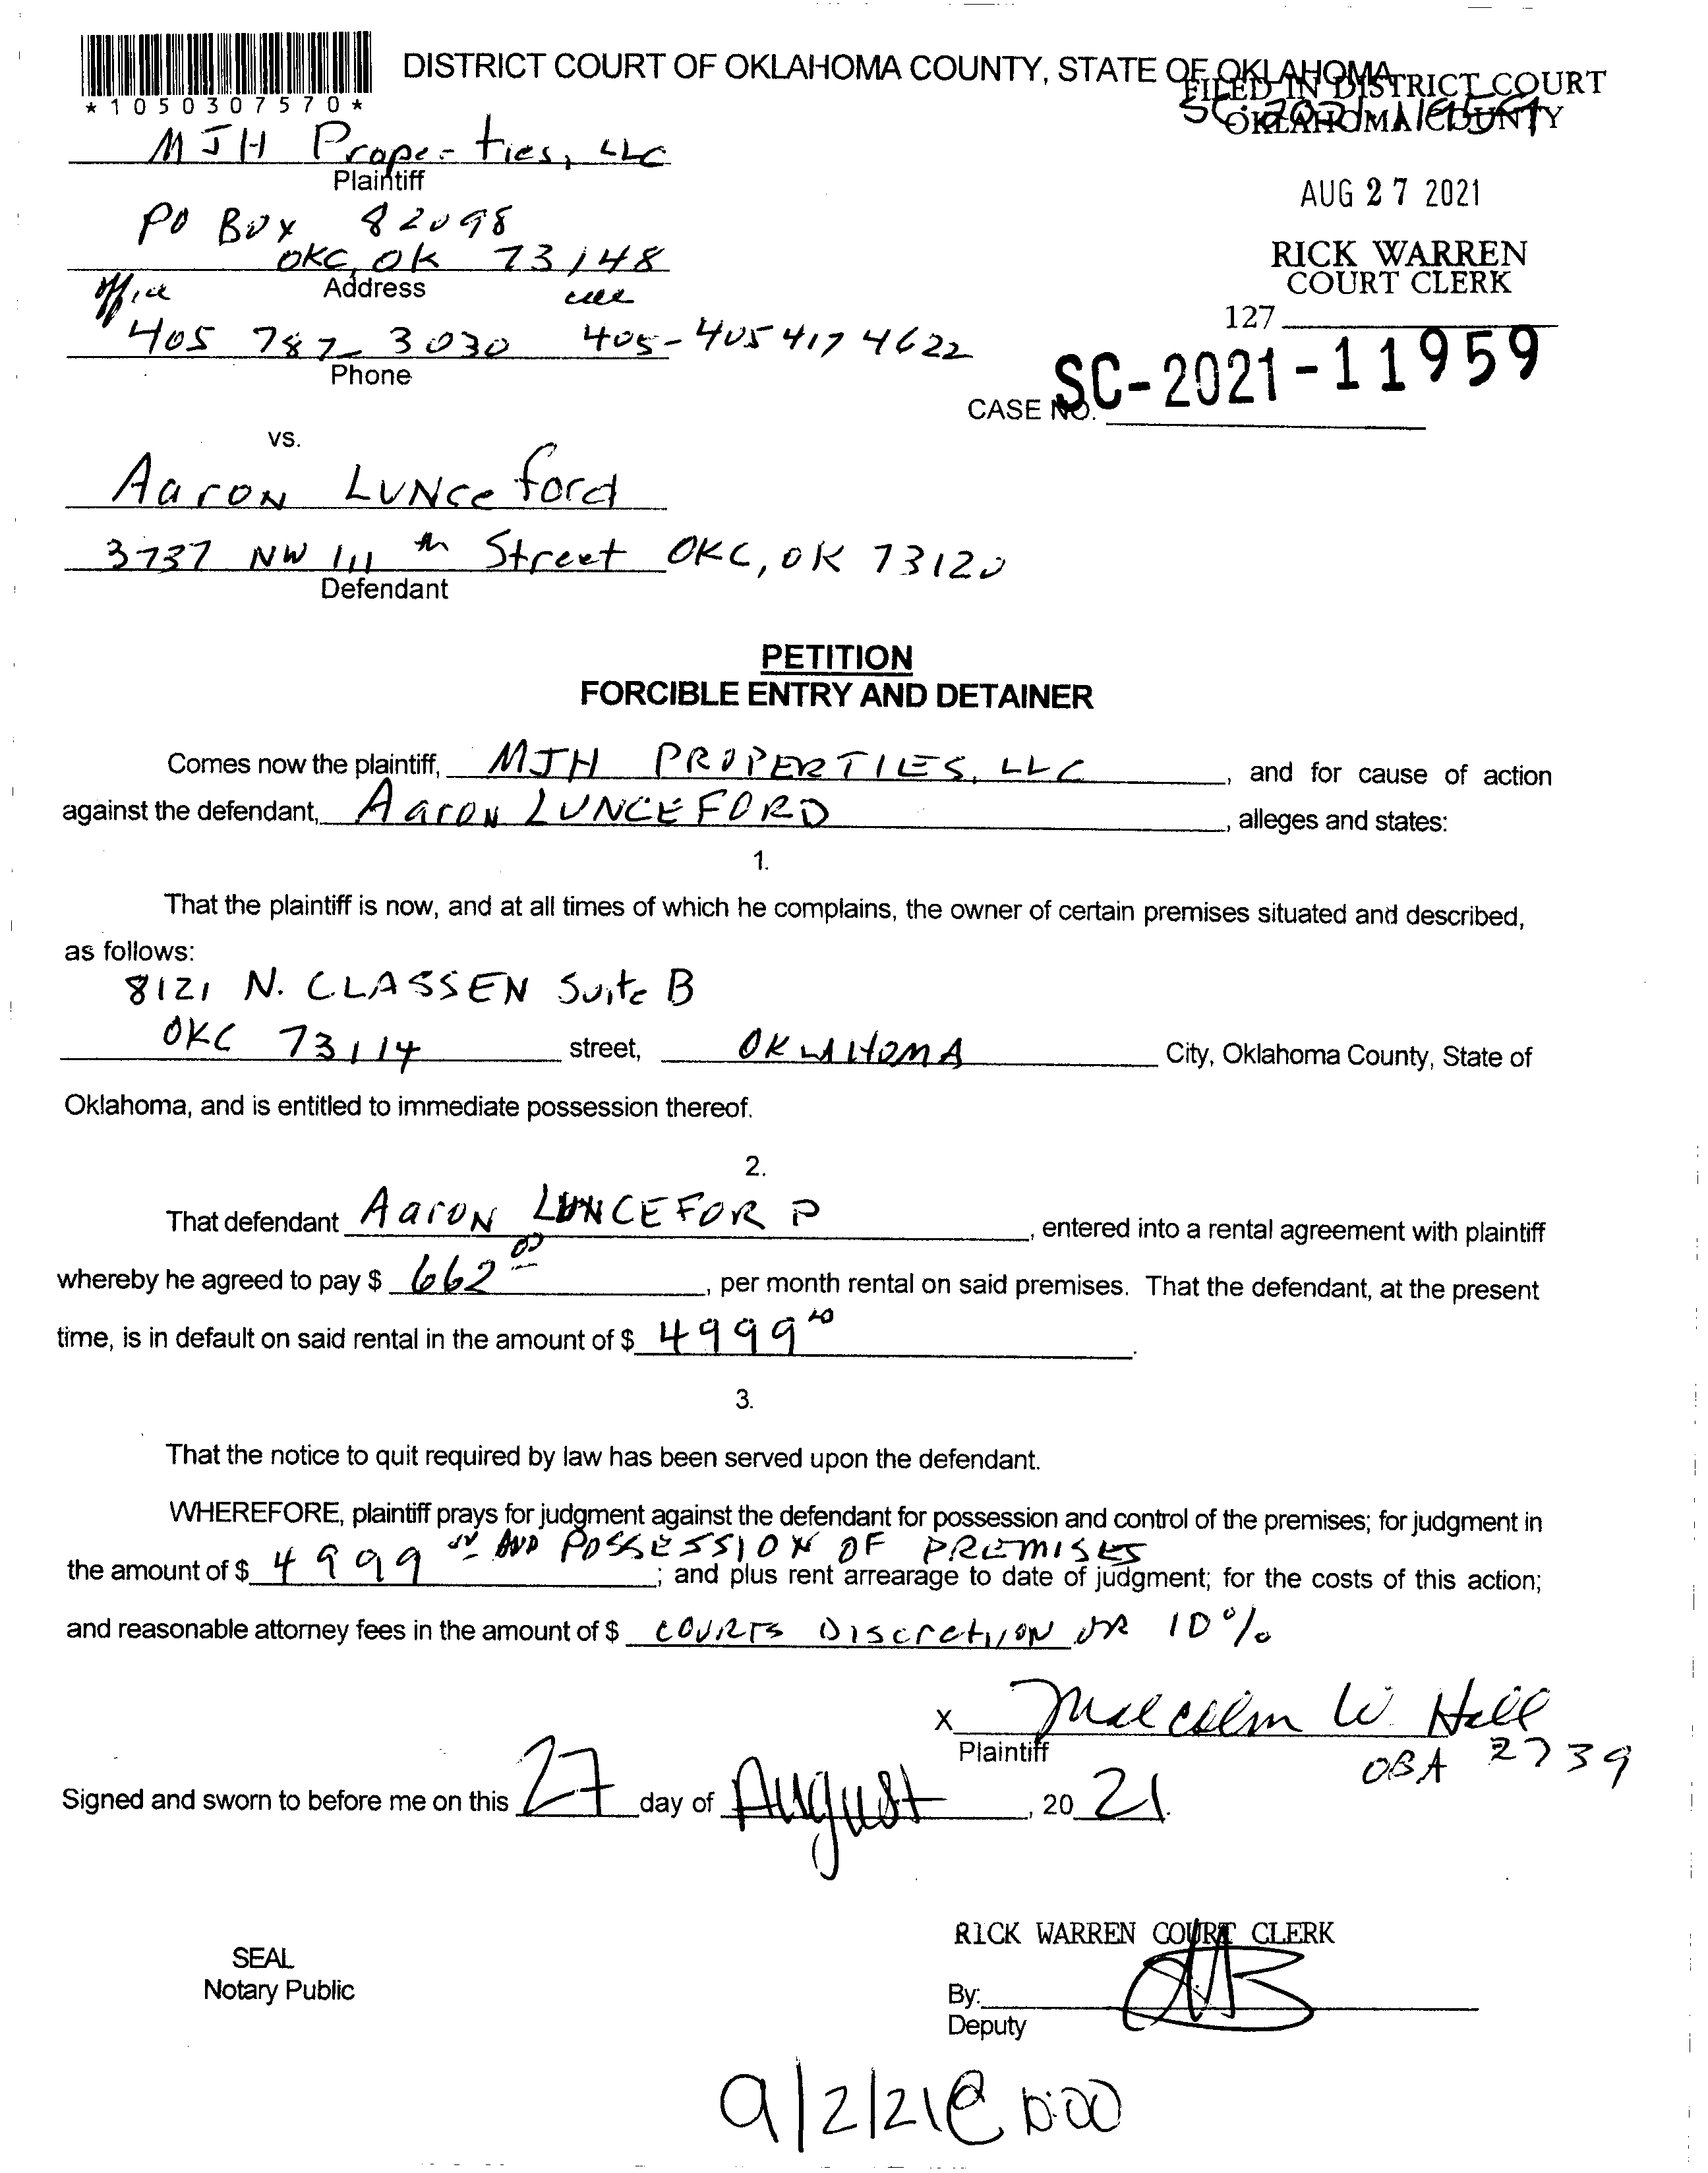 DISTRICT COURT OF OKLAHOMA COUNTY, STATE OF OKLAHOMA
*1050307570*
FILED IN DISTRICT COURT
OKLAHOMA COUNTY
MJH Properties, LLC
Plaintiff
AUG 27 2021
PO Box 82098
OKC, OK 73148
RICK WARREN
COURT CLERK
office Address cell
127
405 787-3030 405-405 417 4622
Phone
SC-2021-11959
CASE NO.
vs.
Aaron Lunceford
3737 NW 111th Street OKC, OK 73120
Defendant
PETITION
FORCIBLE ENTRY AND DETAINER
Comes now the plaintiff, MJH PROPERTIES, LLC, and for cause of action
against the defendant, Aaron LUNCEFORD, alleges and states:
1.
That the plaintiff is now, and at all times of which he complains, the owner of certain premises situated and described,
as follows:
8121 N. CLASSEN Suite B
OKC 73114 street, OKLAHOMA City, Oklahoma County, State of
Oklahoma, and is entitled to immediate possession thereof.
2.
That defendant Aaron LUNCEFORD, entered into a rental agreement with plaintiff
whereby he agreed to pay $ 662 00, per month rental on said premises. That the defendant, at the present
time, is in default on said rental in the amount of $ 4999.
3.
That the notice to quit required by law has been served upon the defendant.
WHEREFORE, plaintiff prays for judgment against the defendant for possession and control of the premises; for judgment in
AND POSSESSION OF PREMISES
the amount of $ 4999; and plus rent arrearage to date of judgment; for the costs of this action;
and reasonable attorney fees in the amount of $ COURTS Discretion OR 10%
x Malcolm W Hall
Plaintiff
OBA 2739
Signed and sworn to before me on this 27 day of August, 20 21.
RICK WARREN COURT CLERK
SEAL
Notary Public
By:
Deputy
9/2/21@